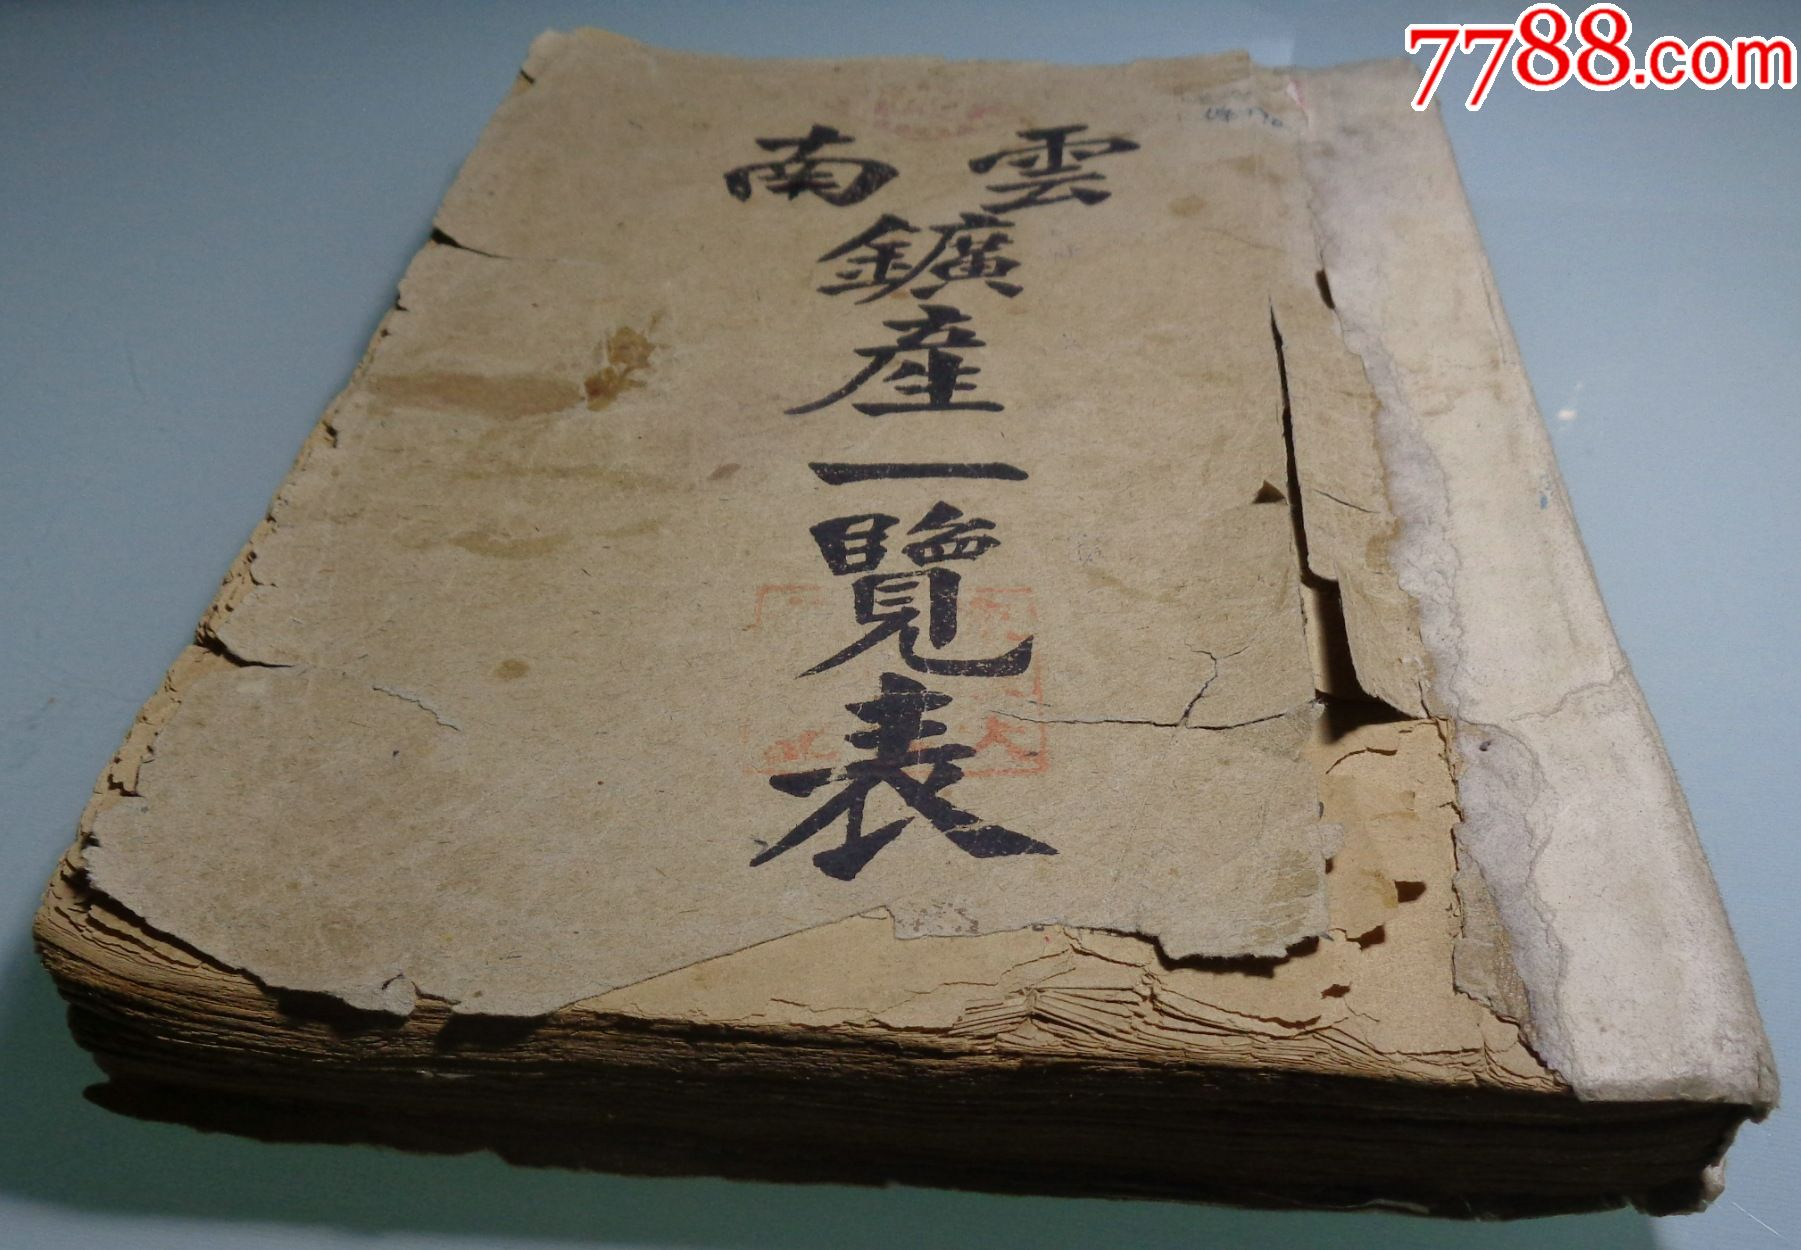 7788.com
雲南
鑛產一覽表